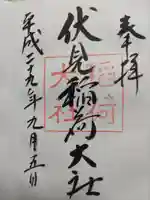 奉拝
伏見稲荷大社
平成二十九年九月五日
稲荷
大社